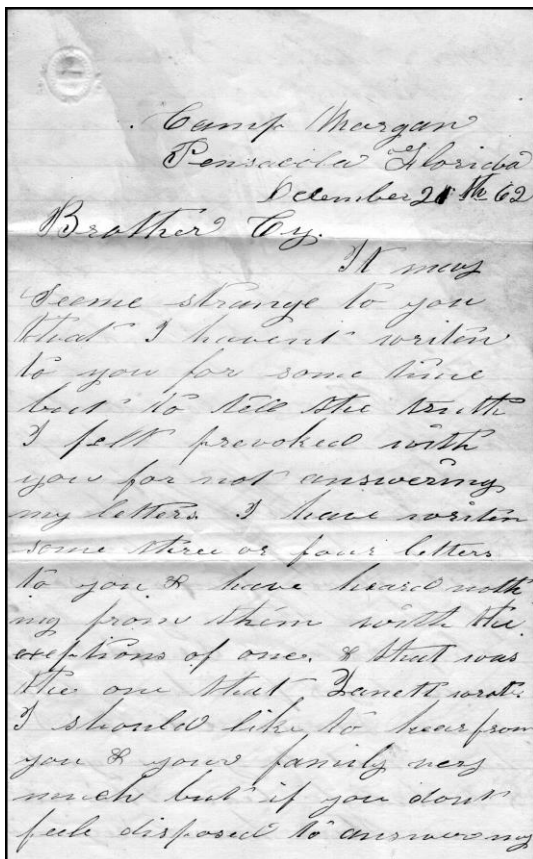 Camp Morgan
Pensacola Florida
December 21th 62
Brother Cy.
It may
seeme strange to you
that I havent writen
to you for some time
but to tell the truth
I felt prevoked with
you for not answering
my letters. I have writen
some three or four letters
to you & have heard noth
ing from them with the
exeptions of one. & that was
the one that Janett wrote.
I should like to hear from
you & your family very
much but if you dont
feele disposed to answer my